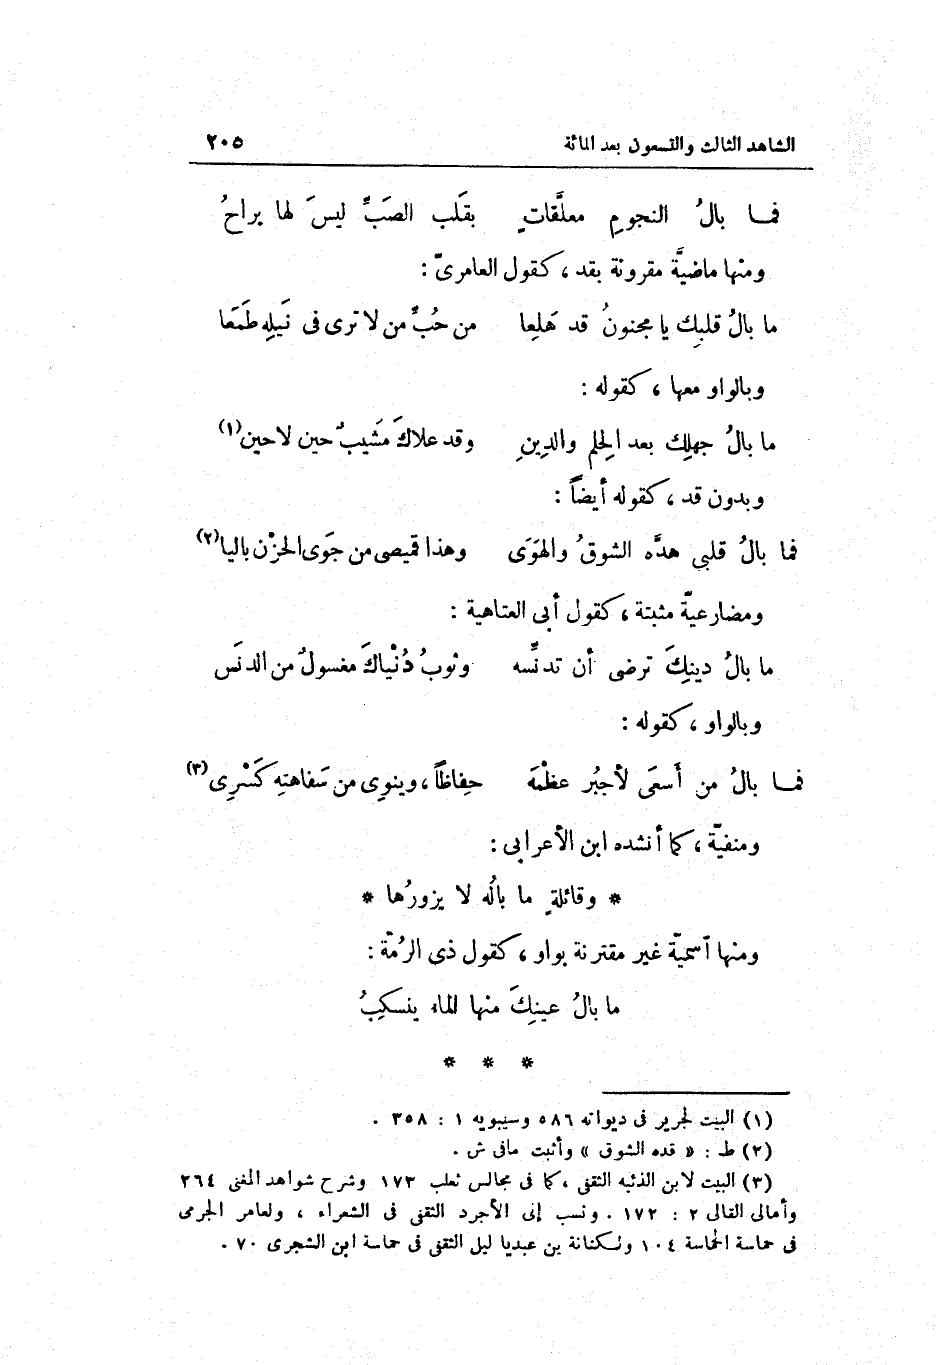 الشاهد الثالث والتسعون بعد المائة ٢٠٥
فمــا بالُ النجومِ معلَّقاتٍ بقَلب الصَبِّ ليسَ لها براحُ
ومنها ماضيَّة مقرونة بقد ، كقول العامرىّ :
ما بالُ قلبِك يا مجنونُ قد هَلِعا من حُبِّ من لا ترى فى نَيلِه طَمَعَا
وبالواو معها ، كقوله :
ما بالُ جهلِك بعد الحِلم والدِينِ وقد علاكَ مَشيبٌ حين لا حين(١)
وبدون قد ، كقوله أيضاً :
فما بالُ قلبى هدَّه الشوقُ والهَوَى وهذا قميصى من جَوَى الحزْن باليا(٢)
ومضارعيّة مثبتة ، كقول أبى العتاهية :
ما بالُ دينِكَ ترضى أن تدنِّسه وثوبُ دُنْياكَ مغسولٌ من الدنَس
وبالواو ، كقوله :
فمــا بالُ من أَسعَى لأجبُر عظْمَهَ حِفاظاً ، وينوِى من سَفاهتِه كَسْرِى(٣)
ومنفيّة ، كما أنشده ابن الأعرابى :
* وقائلةٍ ما بالُه لا يزورُها *
ومنها آسميّة غير مقترنة بواو ، كقول ذى الرُمّة :
ما بالُ عينِكَ منها الماء ينسكِبُ
* * *
(١) البيت لجرير فى ديوانه ٥٨٦ وسيبويه ١ : ٣٥٨ .
(٢) ط : « قده الشوق » وأثبت مافى ش .
(٣) البيت لابن الذئبه الثقفى ، كما فى مجالس ثعلب ١٧٣ وشرح شواهد المغنى ٢٦٤
وأمالى القالى ٢ : ١٧٢ . ونسب إلى الأجرد الثقفى فى الشعراء ، ولعامر الجرمى
فى حماسة الحماسة ١٠٤ ولكنانة بن عبديا ليل الثقفى فى حماسة ابن الشجرى ٧٠ .